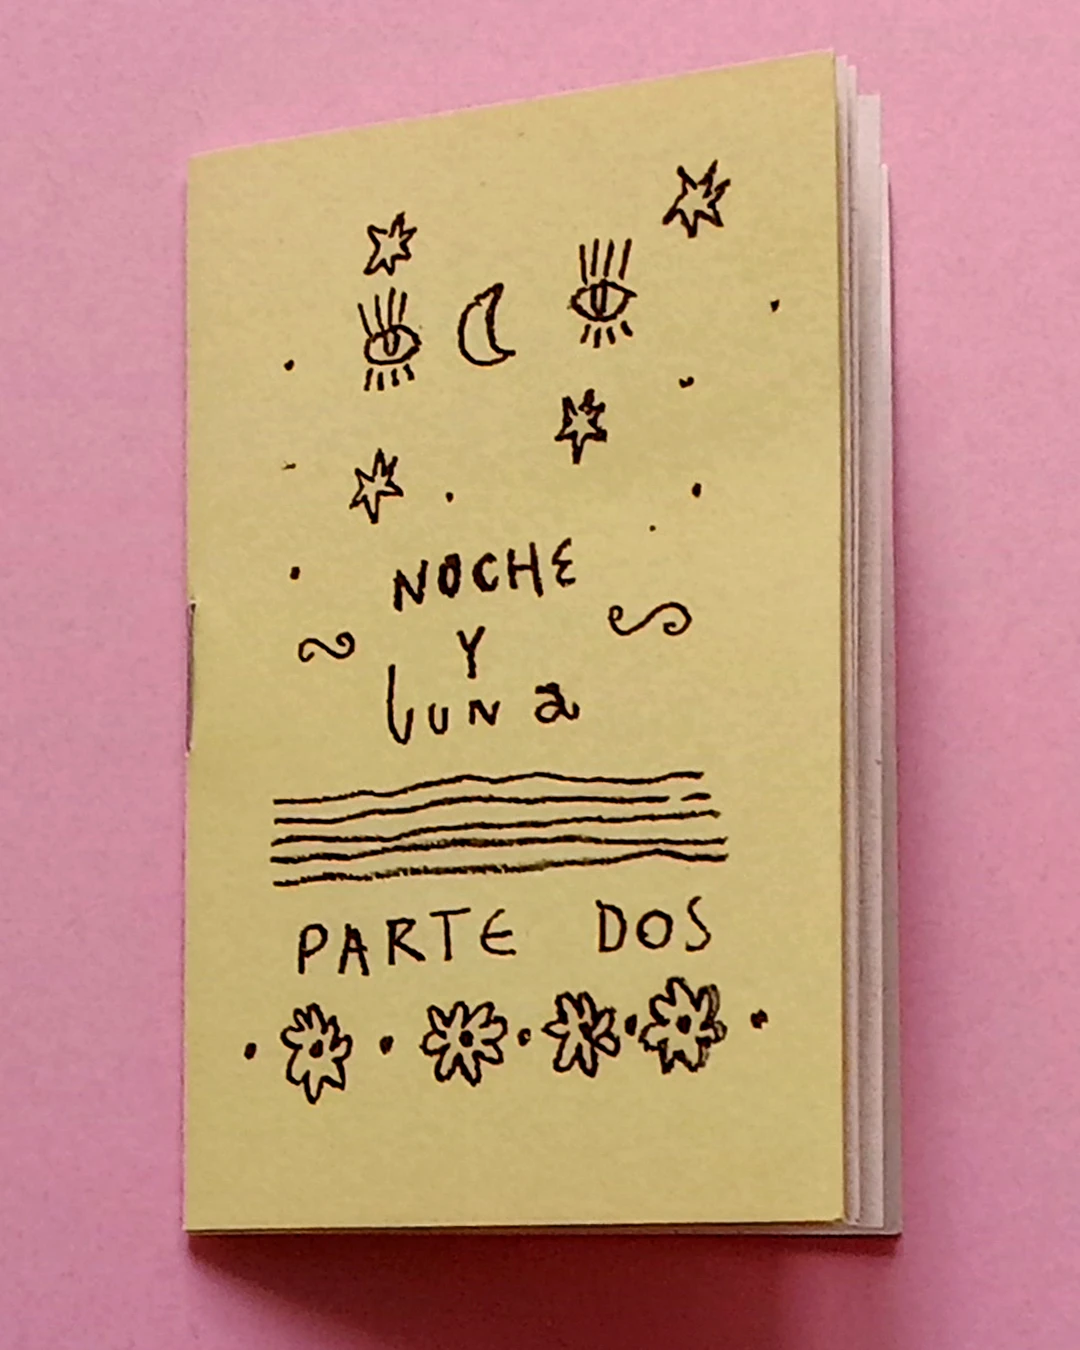 NOCHE
Y
LUNa
PARTE DOS